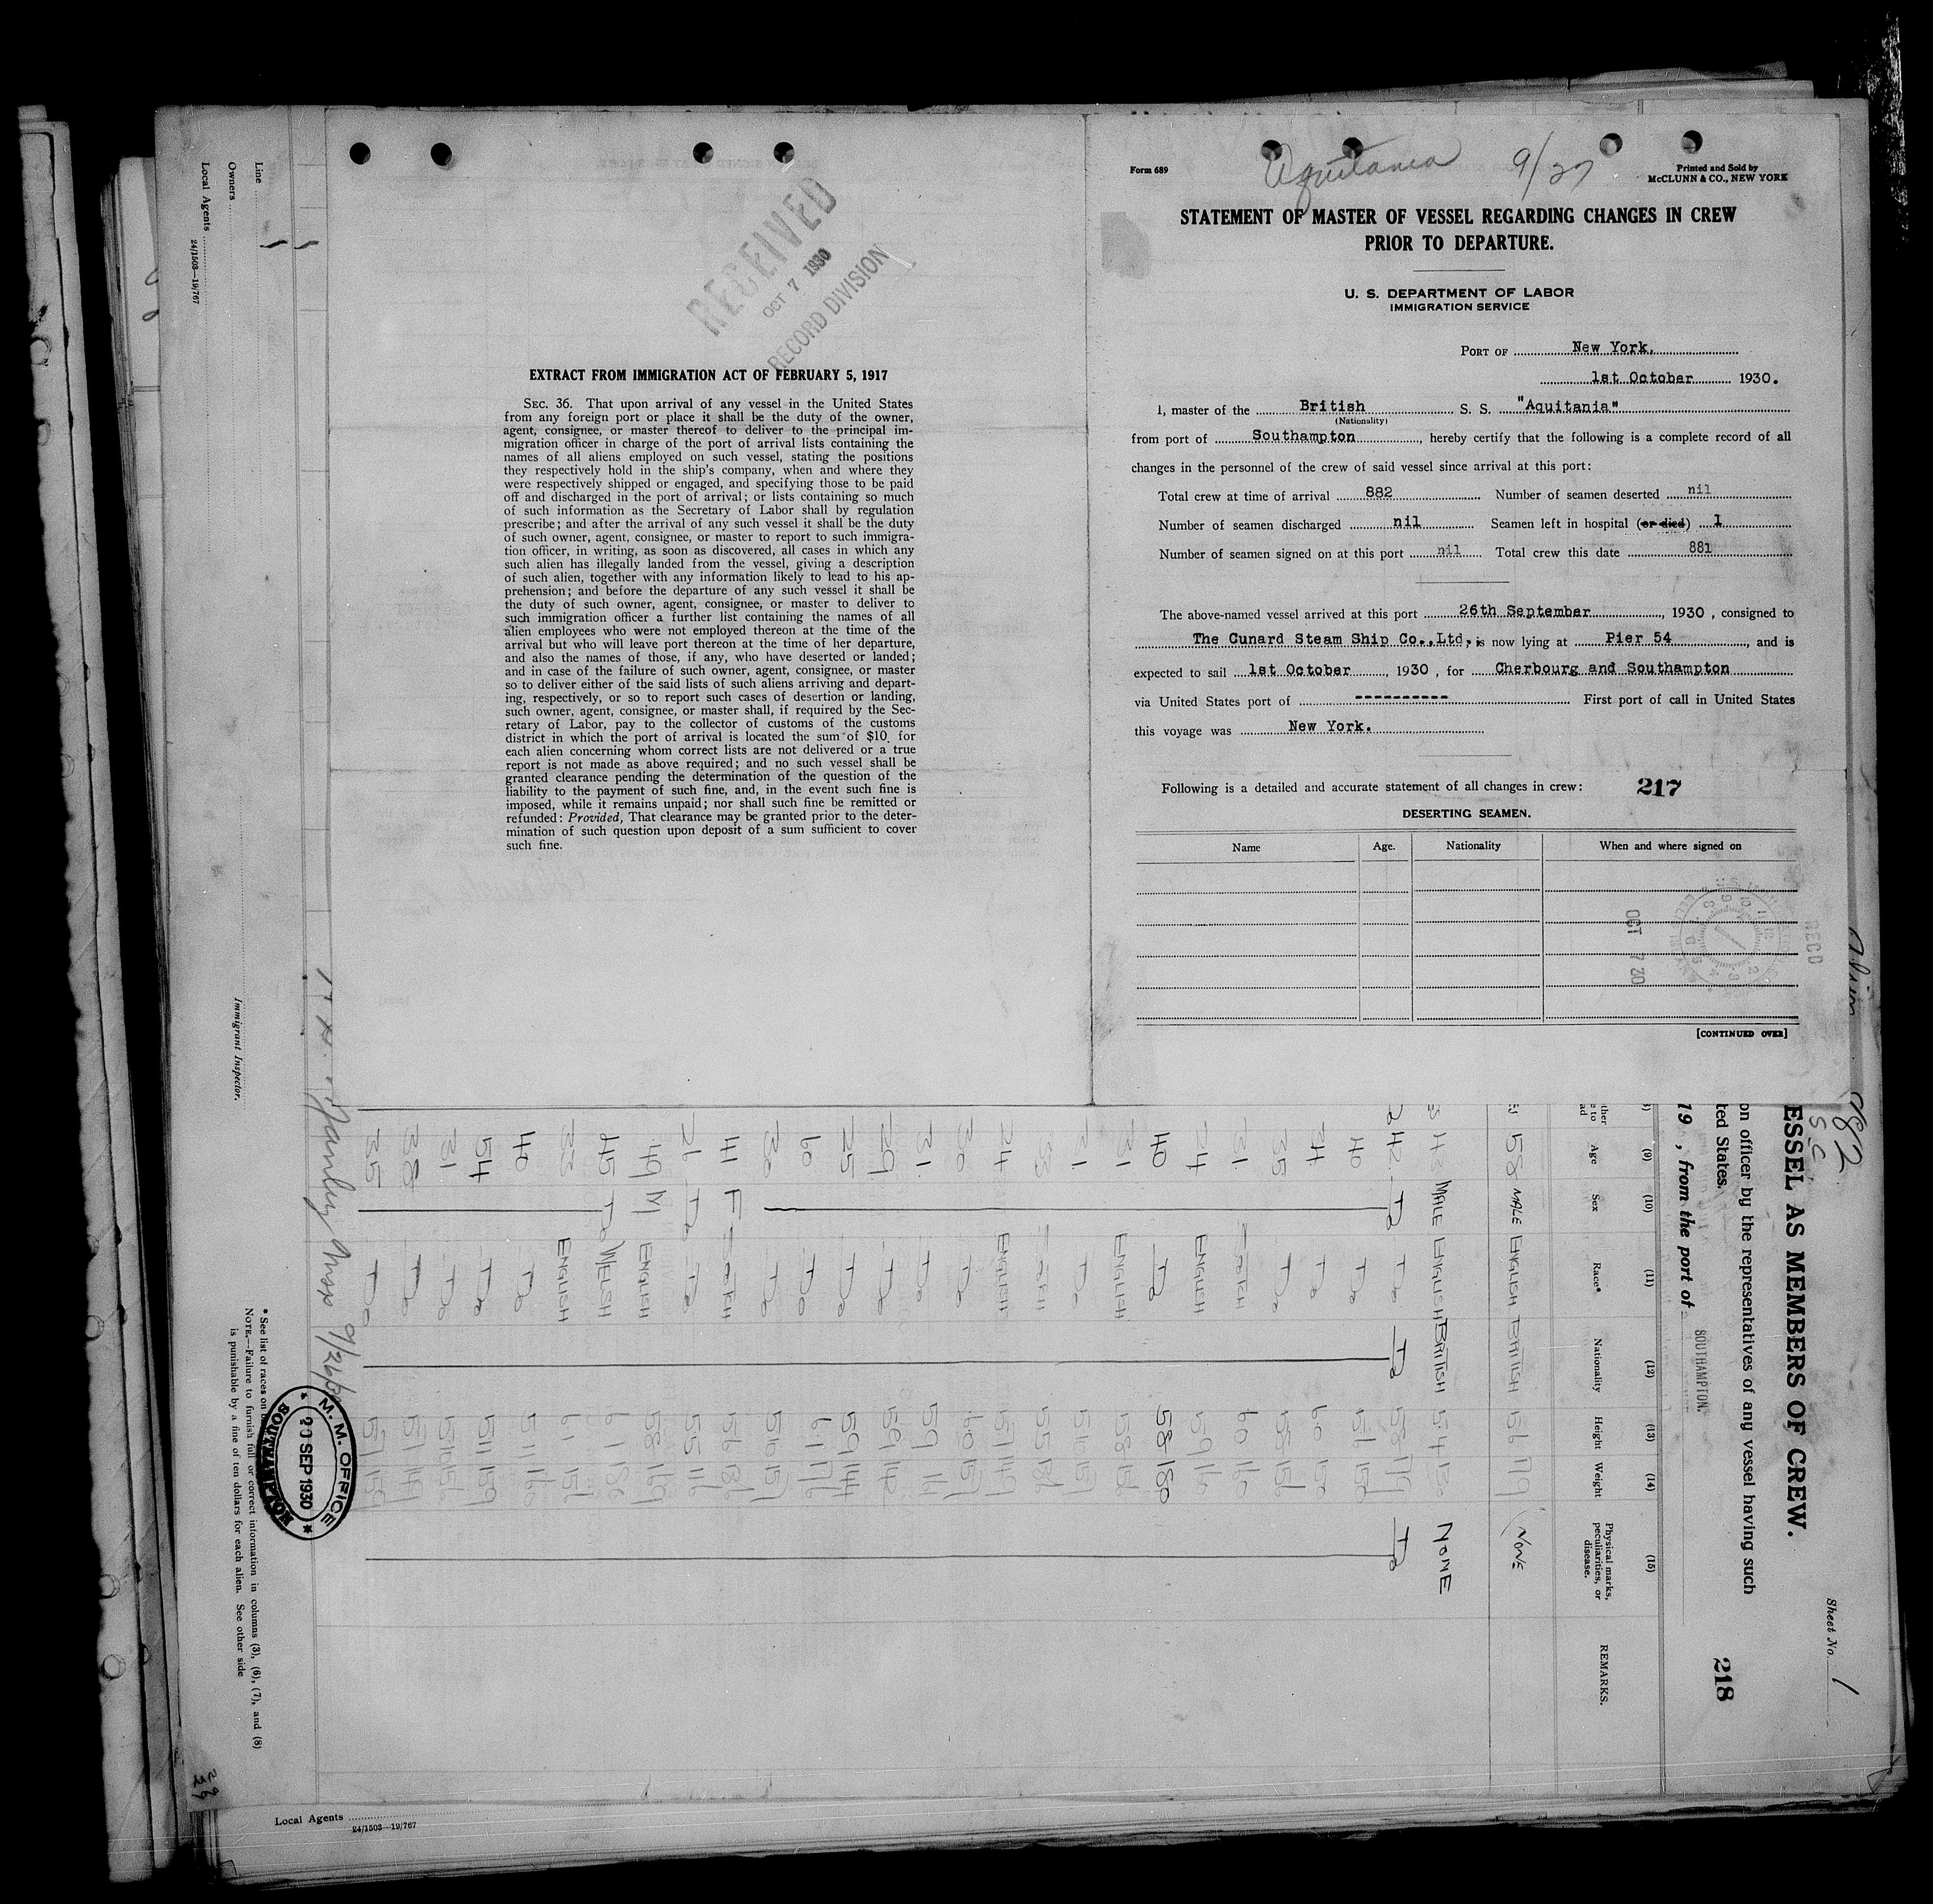 Form 689
Aquitania 9/27
Printed and Sold by
McCLUNN & CO., NEW YORK
STATEMENT OF MASTER OF VESSEL REGARDING CHANGES IN CREW
PRIOR TO DEPARTURE.
U. S. DEPARTMENT OF LABOR
IMMIGRATION SERVICE
PORT OF New York,
1st October 1930.
I, master of the British S. S. "Aquitania"
(Nationality)
from port of Southampton, hereby certify that the following is a complete record of all
changes in the personnel of the crew of said vessel since arrival at this port:
Total crew at time of arrival 882 Number of seamen deserted nil
Number of seamen discharged nil Seamen left in hospital (or died) 1
Number of seamen signed on at this port nil Total crew this date 881
The above-named vessel arrived at this port 26th September, 1930, consigned to
The Cunard Steam Ship Co.,Ltd, is now lying at Pier 54, and is
expected to sail 1st October, 1930, for Cherbourg and Southampton
via United States port of ---------- First port of call in United States
this voyage was New York.
Following is a detailed and accurate statement of all changes in crew: 217
DESERTING SEAMEN.
Name Age. Nationality When and where signed on
OCT 7 30
RECD
[CONTINUED OVER]
RECEIVED
OCT 7 1930
RECORD DIVISION
EXTRACT FROM IMMIGRATION ACT OF FEBRUARY 5, 1917
SEC. 36. That upon arrival of any vessel in the United States
from any foreign port or place it shall be the duty of the owner,
agent, consignee, or master thereof to deliver to the principal im-
migration officer in charge of the port of arrival lists containing the
names of all aliens employed on such vessel, stating the positions
they respectively hold in the ship's company, when and where they
were respectively shipped or engaged, and specifying those to be paid
off and discharged in the port of arrival; or lists containing so much
of such information as the Secretary of Labor shall by regulation
prescribe; and after the arrival of any such vessel it shall be the duty
of such owner, agent, consignee, or master to report to such immigra-
tion officer, in writing, as soon as discovered, all cases in which any
such alien has illegally landed from the vessel, giving a description
of such alien, together with any information likely to lead to his ap-
prehension; and before the departure of any such vessel it shall be
the duty of such owner, agent, consignee, or master to deliver to
such immigration officer a further list containing the names of all
alien employees who were not employed thereon at the time of the
arrival but who will leave port thereon at the time of her departure,
and also the names of those, if any, who have deserted or landed;
and in case of the failure of such owner, agent, consignee, or master
so to deliver either of the said lists of such aliens arriving and depart-
ing, respectively, or so to report such cases of desertion or landing,
such owner, agent, consignee, or master shall, if required by the Sec-
retary of Labor, pay to the collector of customs of the customs
district in which the port of arrival is located the sum of $10 for
each alien concerning whom correct lists are not delivered or a true
report is not made as above required; and no such vessel shall be
granted clearance pending the determination of the question of the
liability to the payment of such fine, and, in the event such fine is
imposed, while it remains unpaid; nor shall such fine be remitted or
refunded: Provided, That clearance may be granted prior to the deter-
mination of such question upon deposit of a sum sufficient to cover
such fine.
Sheet No. 1
882
ESSEL AS MEMBERS OF CREW.
on officer by the representatives of any vessel having such
ted States.
218
19 , from the port of SOUTHAMPTON.
(9) (10) (11) (12) (13) (14) (15)
Age Sex Race* Nationality Height Weight Physical marks, peculiarities, or disease. REMARKS.
58 MALE ENGLISH BRITISH 56 179 NONE
43 MALE ENGLISH BRITISH 54 130 NONE
42 Do Do Do 58 Do
40 Do 56
34 Do 60
35 Do 58
31 SCOTCH 60 160
24 ENGLISH 59
40 Do 58 180
31 ENGLISH 58
31 Do 56
33 SCOTCH 55
24 ENGLISH 57 149
30 Do
31 Do 59
29 Do 59
25 Do 59 144
60 Do 61 176
30 Do 56 151
41 F SCOTCH 56
26 Do Do 55
49 M ENGLISH 58 169
45 Do WELSH 61 186
33 ENGLISH 61
40 Do 511 160
54 Do 511 159
31 Do 510 156
38 Do 57 149
35 Do 57 159
9/26/30
M. M. OFFICE
20 SEP 1930
SOUTHAMPTON
* See list of races on
NOTE.—Failure to furnish full or correct information in columns (3), (6), (7), and (8)
is punishable by a fine of ten dollars for each alien. See other side
Immigrant Inspector.
Line
Owners
Local Agents
24/1503—19/767
Local Agents
24/1503—19/767